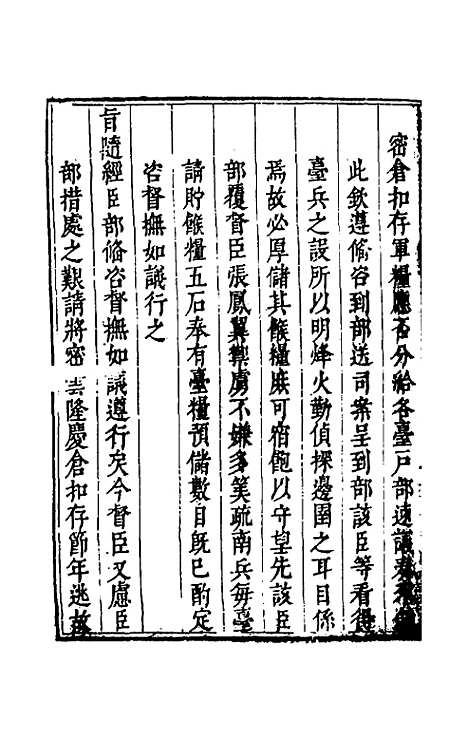 密倉扣存軍糧應否分給各臺戶部速議
此欽遵俻咨到部送司案呈到部該臣等看得
臺兵之設所以明烽火勤偵探邊圉之耳目係
焉故必厚儲其餱糧庶可宿飽以守望先該臣
部覆督臣張鳳翼禦虜不嫌多筭疏南兵每臺
請貯餱糧五石奉有臺糧預儲數目旣已酌定
咨督撫如議行之
旨隨經臣部俻咨督撫如議遵行矣今督臣又慮臣
部措處之艱請將密雲隆慶倉扣存節年逃故